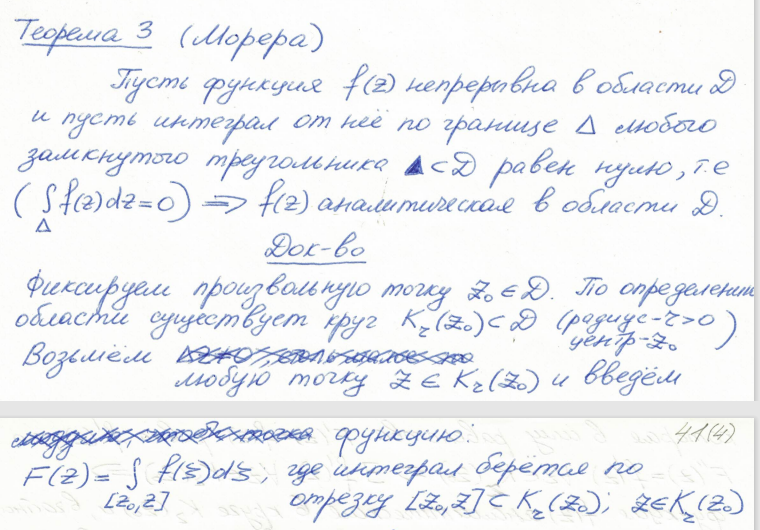 Теорема 3 (Морера)
Пусть функция f(z) непрерывна в области D
и пусть интеграл от неё по границе Δ любого
замкнутого треугольника ▲⊂D равен нулю, т.е
(∫_Δ f(z)dz=0) ⟹ f(z) аналитическая в области D.
Док-во
Фиксируем произвольную точку z₀∈D. По определению
области существует круг K_r(z₀)⊂D (радиус-r>0
центр-z₀)
Возьмём
любую точку z∈K_r(z₀) и введём
функцию: 41(4)
F(z)=∫_[z₀,z] f(ξ)dξ, где интеграл берётся по
отрезку [z₀,z]⊂K_r(z₀); z∈K_r(z₀)